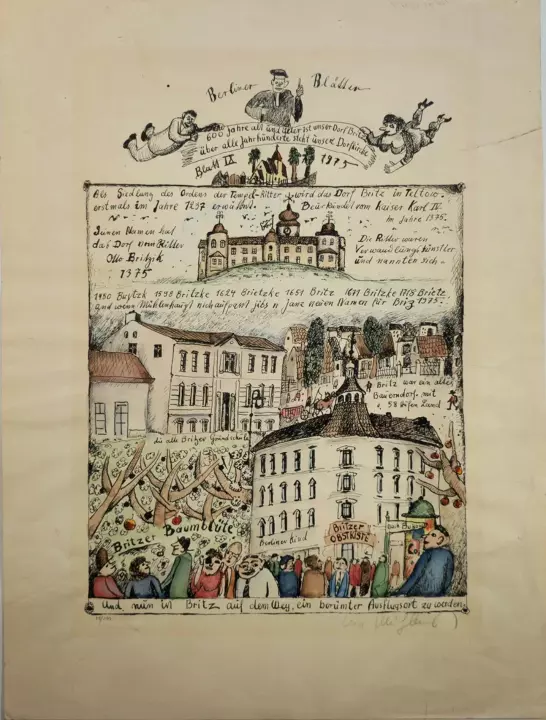 Berliner Blätter
600 Jahre alt und älter ist unser Dorf Britz
über alle Jahrhunderte steht unsere Dorfkirche
Blatt IX 1975
Als Siedlung des Ordens der Tempel-Ritter wird das Dorf Britz in Teltow
erstmals im Jahre 1237 erwähnt. Beurkundet vom Kaiser Karl IV.
im Jahre 1375.
Seinen Namen hat
das Dorf vom Ritter
Otto Britzik
1375
Die Ritter waren
Verwandlungskünstler
und nannten sich -
1450 1598 Britzke 1624 Brietzke 1651 Britz 1671 Britzke 1718 Brietz
und wenn Mühlenhaupt nich aufpasst jibs n janz neien Namen für Briz 1975.
Britz war ein altes
Bauerndorf mit
58 Hufen Land
die alte Britzer Grundschule
Britzer Baumblüte
Berliner Kindl
Britzer
OBSTKISTE
Und nun ist Britz auf dem Weg, ein berümter Ausflugsort zu werden